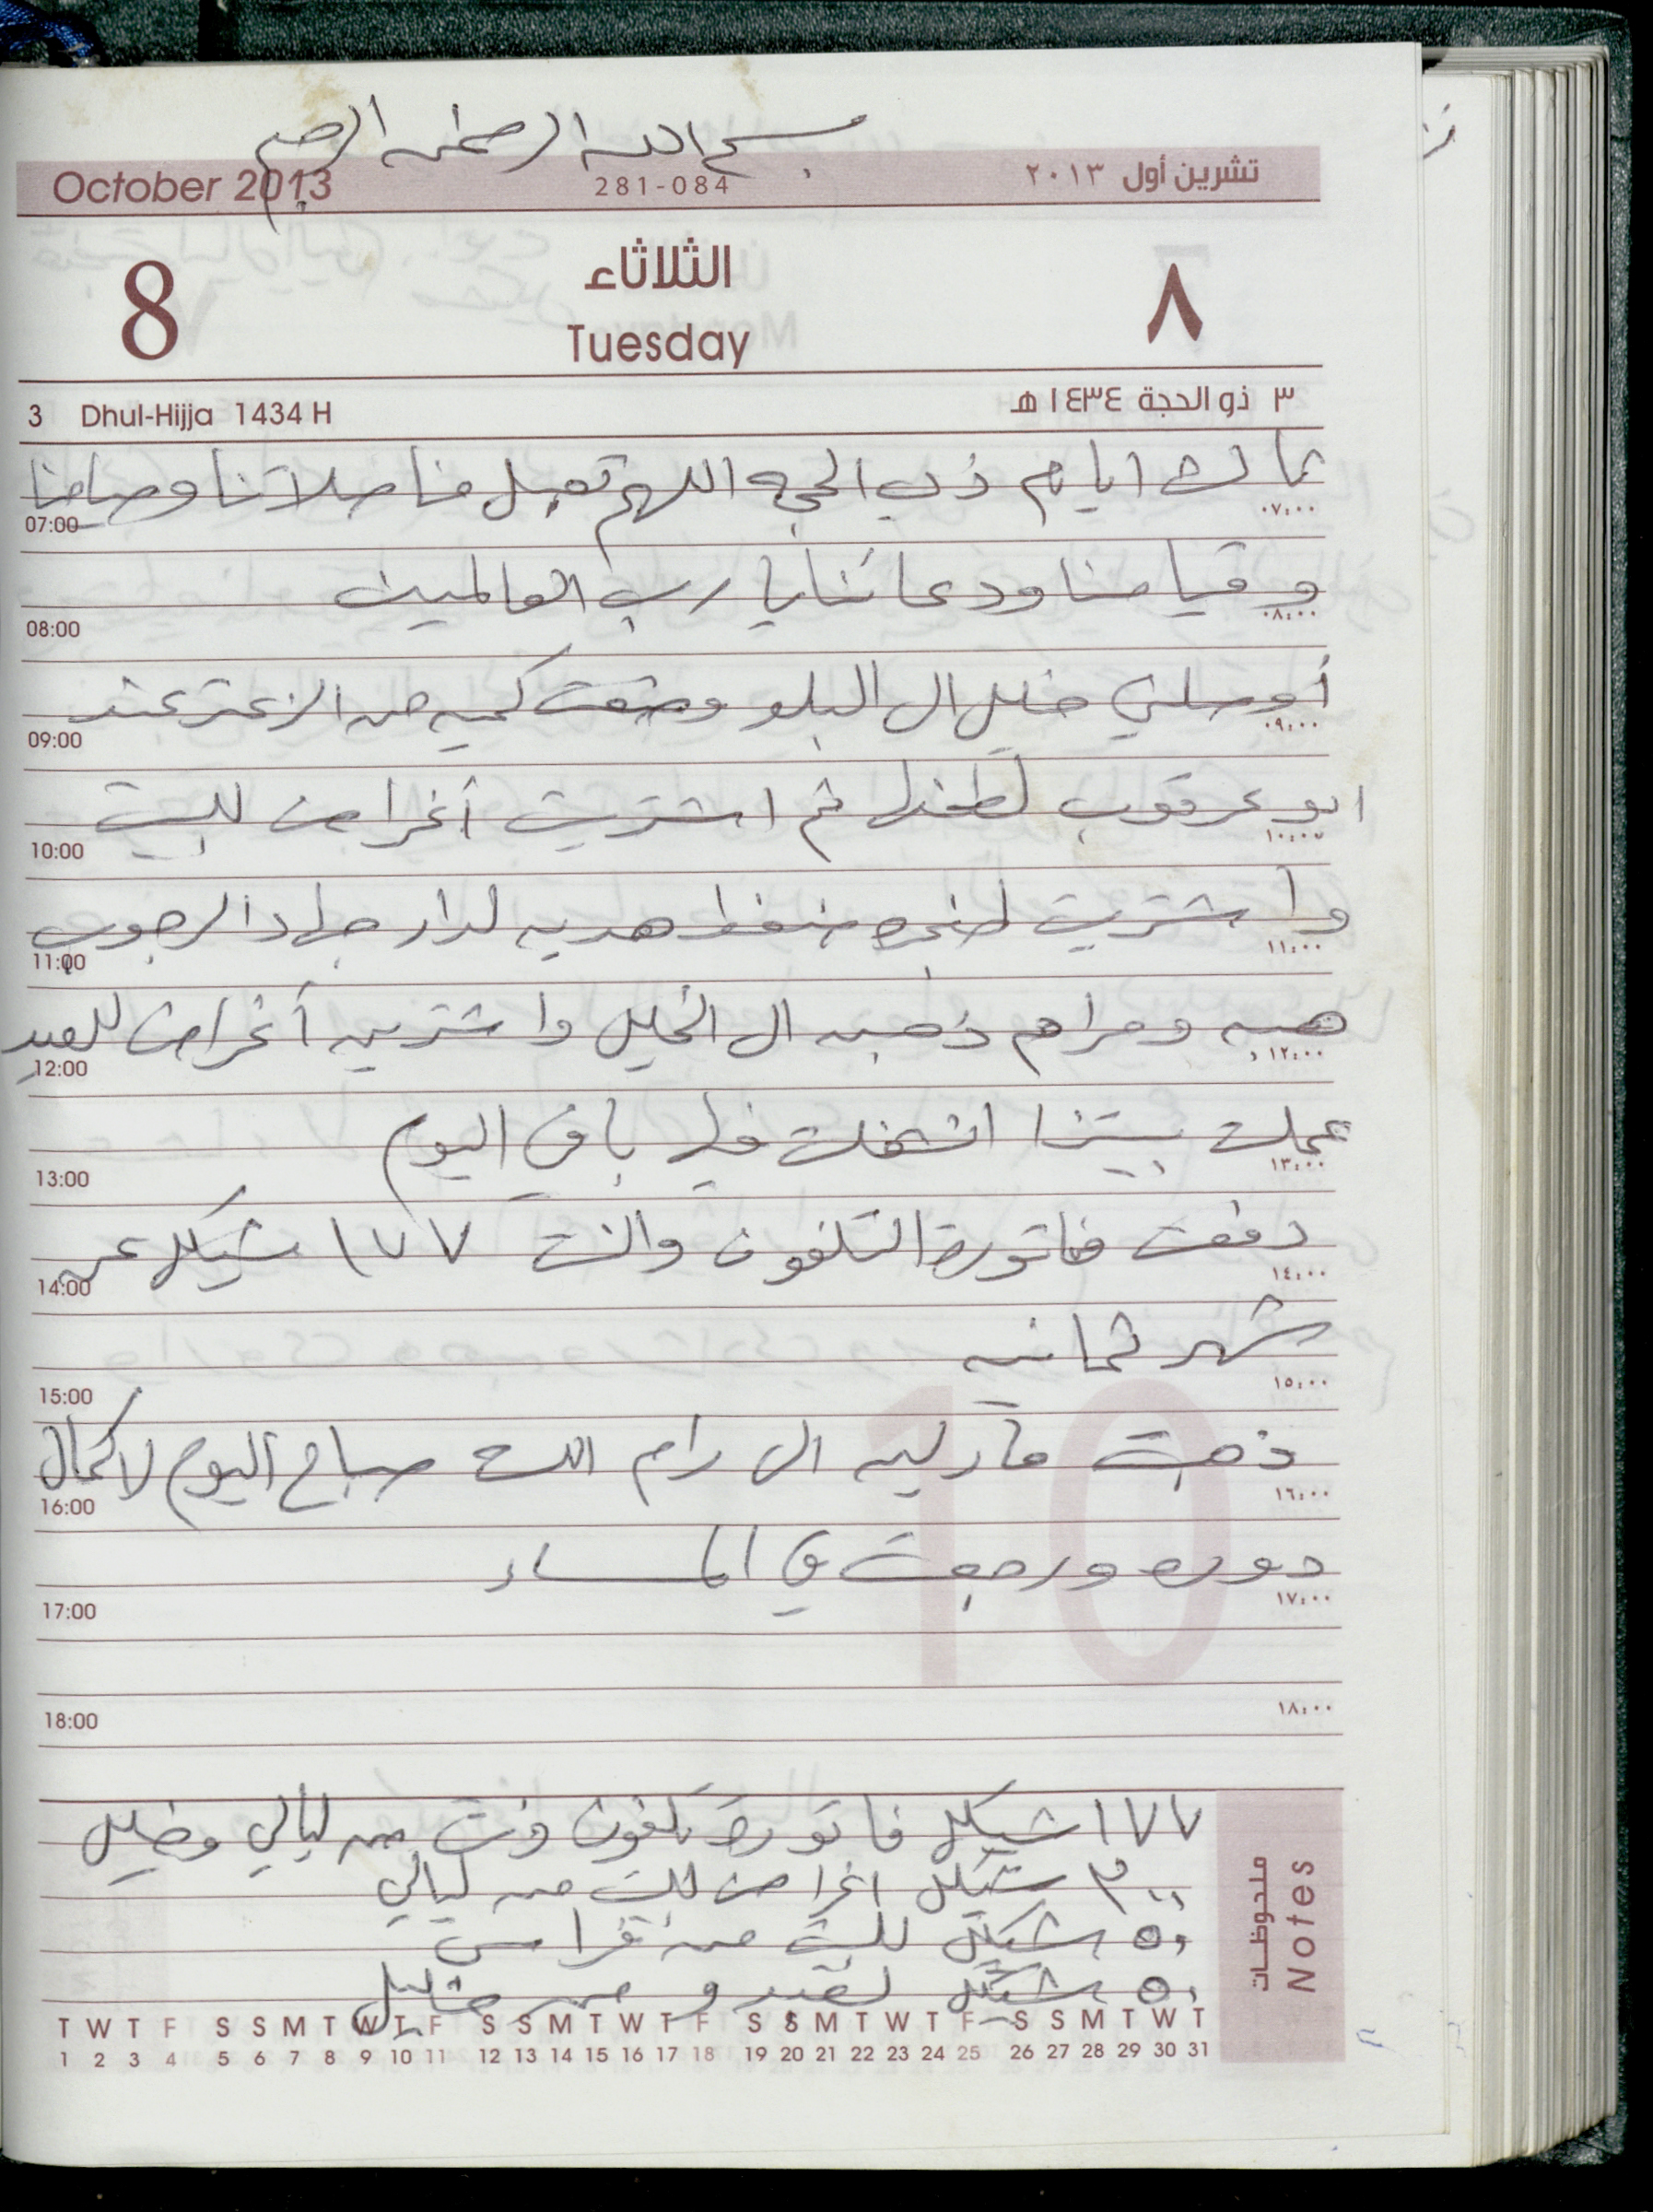 بسم الله الرحمن الرحيم
October 2013 281-084 تشرين أول ٢٠١٣
8 الثلاثاء ٨
Tuesday
3 Dhul-Hijja 1434 H ٣ ذو الحجة ١٤٣٤ هـ
ثالث ايام ذي الحجه اللهم تقبل منا صلاتنا وصيامنا
07:00 ٠٧:٠٠
وقيامنا ودعائنا يا رب العالمين
08:00 ٠٨:٠٠
أوصلني خليل الى البلد وضعت كميه من الزعتر عند
09:00 ٠٩:٠٠
ابو عرقوب لطحنها ثم اشتريت أغراض للبيت
10:00 ١٠:٠٠
وأشتريت طنجره ضغط هديه لدار جهاد الرجوب
11:00 ١١:٠٠
هبه ومرام ذهبن الى الخليل واشترين أغراض للعيد
12:00 ١٢:٠٠
عملت بيتزا انشغلت فيها باقي اليوم
13:00 ١٣:٠٠
دفعت فاتورة التلفون والنت ١٧٧ شيكل عن
14:00 ١٤:٠٠
شهر ثمانيه
15:00 ١٥:٠٠
ذهبت مادلين الى رام الله صباح اليوم لاكمال
16:00 ١٦:٠٠
دوره ورجعت في المساء
17:00 ١٧:٠٠
18:00 ١٨:٠٠
10
١٧٧ شيكل فاتورة تلفون ونت من ليالي وخليل
٣٠٠ شيكل اغراض للبيت من ليالي
٥٠ شيكل للبيت من
٥٠ شيكل من خليل
ملحوظات
Notes
T W T F S S M T W T F S S M T W T F S S M T W T F S S M T W T
1 2 3 4 5 6 7 8 9 10 11 12 13 14 15 16 17 18 19 20 21 22 23 24 25 26 27 28 29 30 31